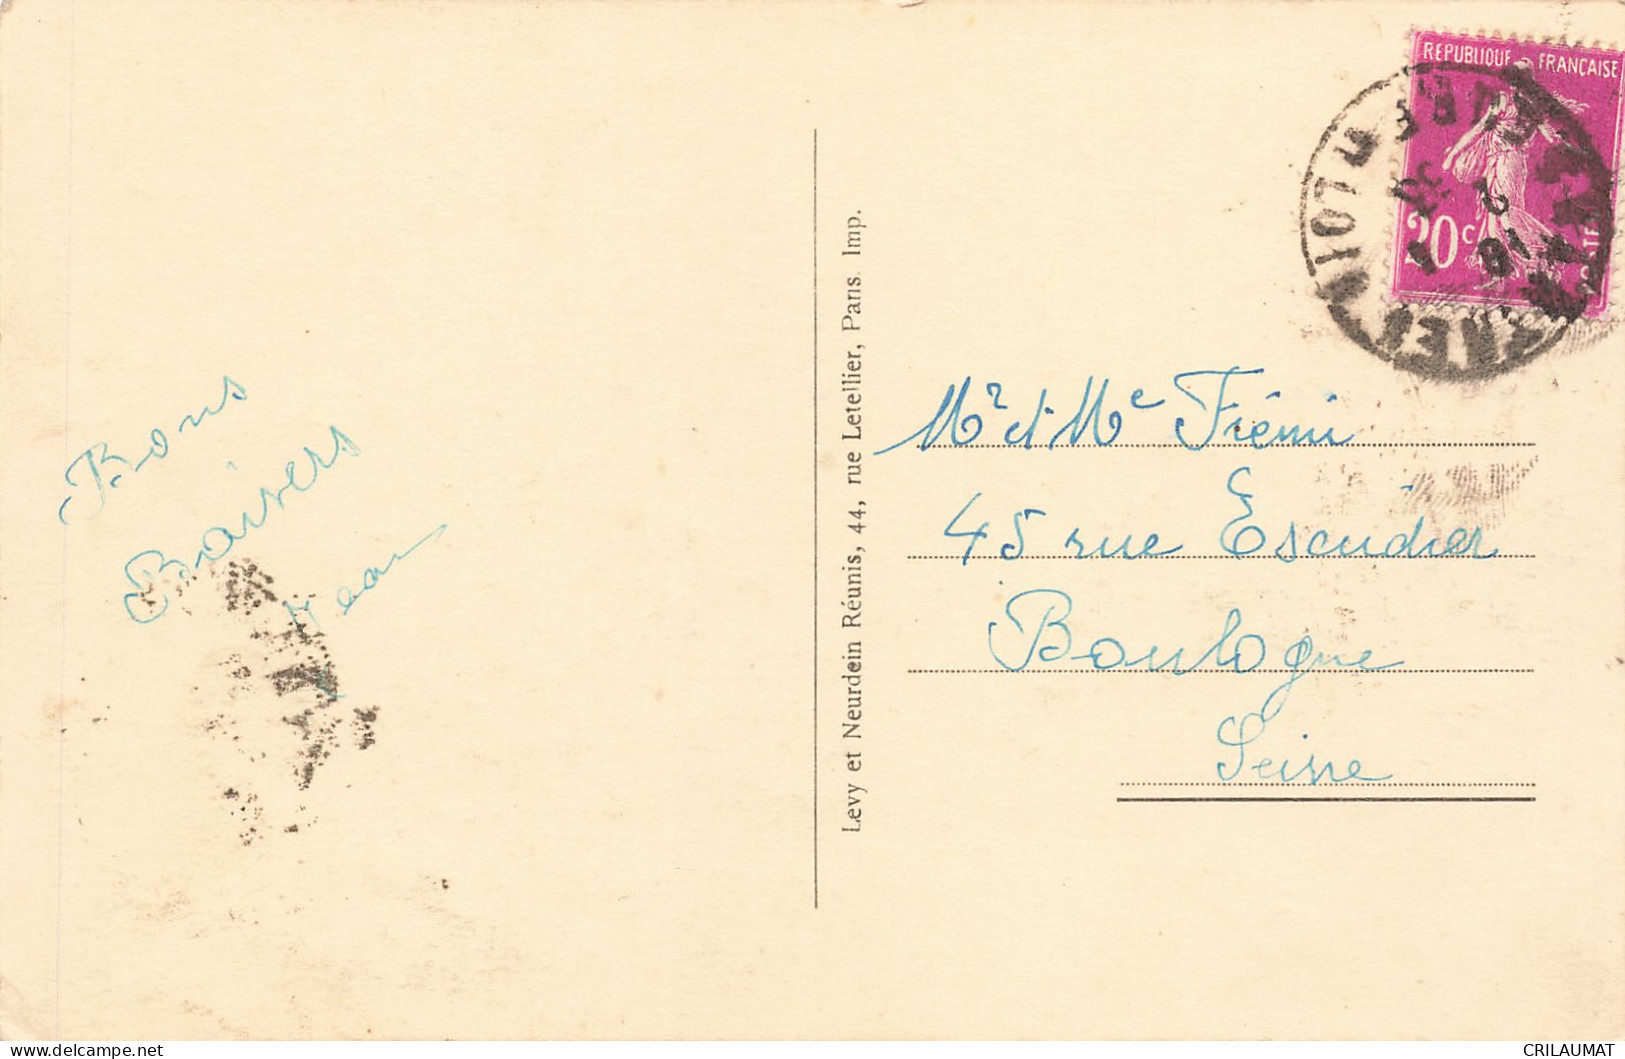 Bons
Baisers
Jean
Levy et Neurdein Réunis, 44, rue Letellier, Paris. Imp.
REPUBLIQUE FRANÇAISE
20c
Mr et Me Frémi
45 rue Escudier
Boulogne
Seine
delcampe.net
CRILAUMAT